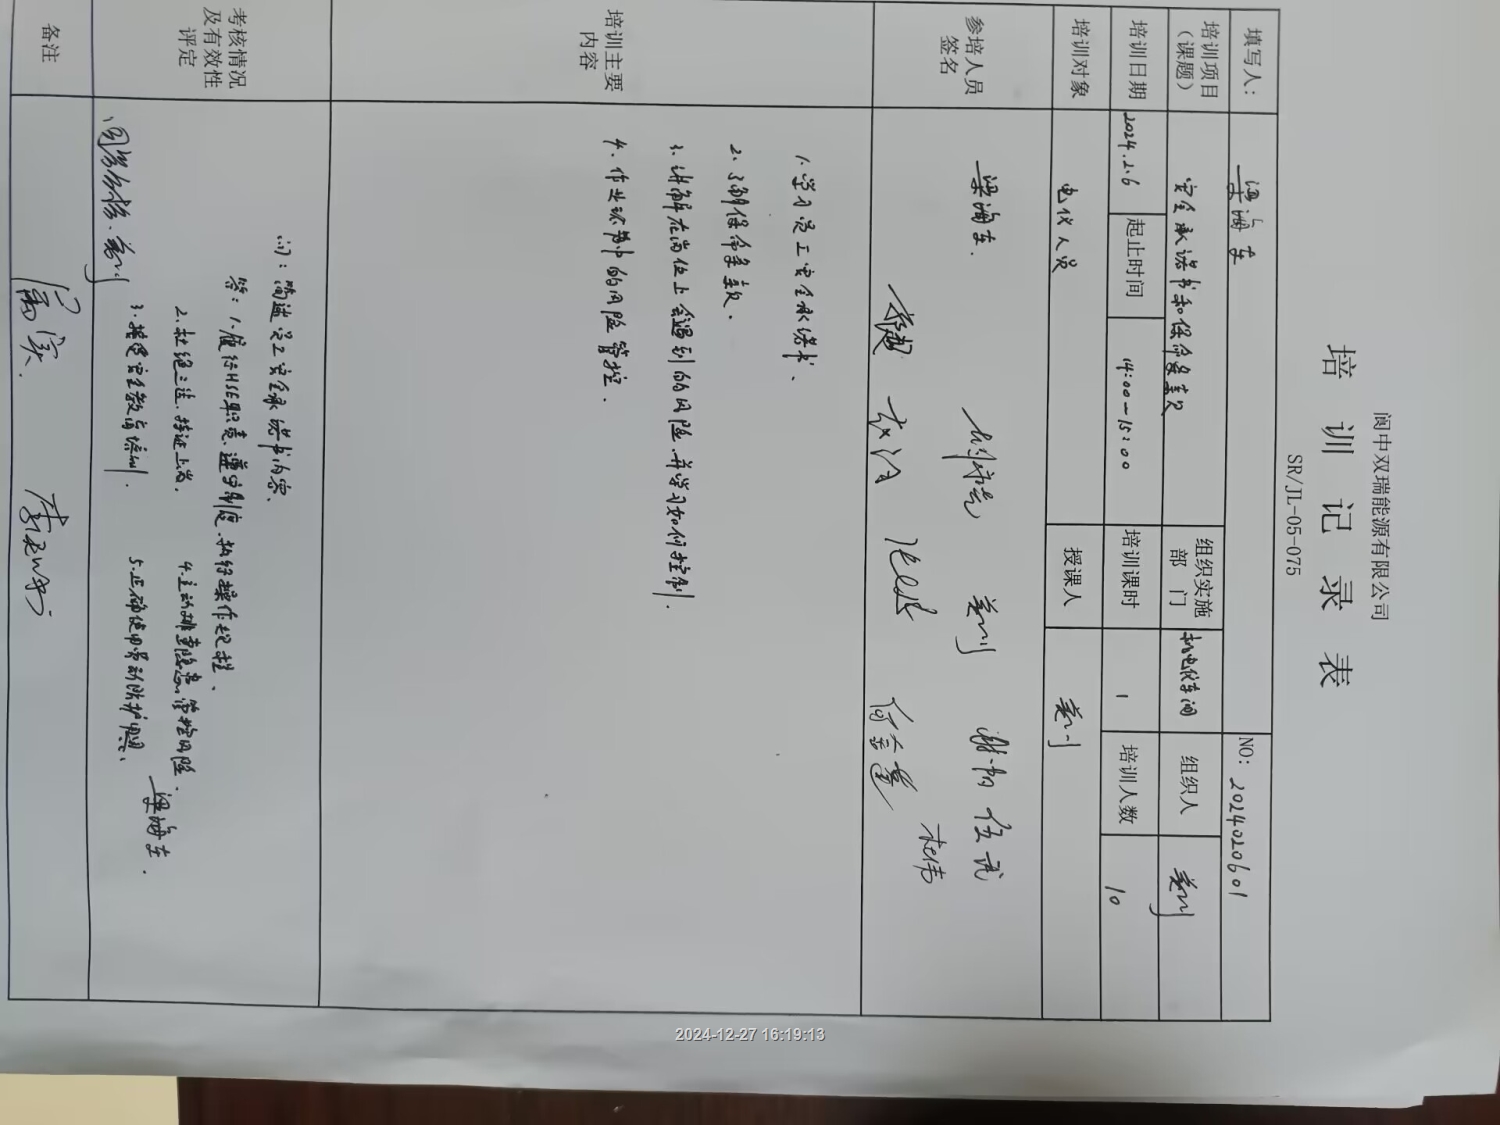 阆中双瑞能源有限公司
培训记录表
SR/JL-05-075
填写人: 梁海东 NO: 2024020601
培训项目（课题） 安全承诺书和保命条款 组织实施部门 机电仪车间 组织人 姜川
培训日期 2024.2.6 起止时间 14:00-15:00 培训课时 1 培训人数 10
培训对象 电仪人员 授课人 姜川
参培人员签名 梁海东. 姜川 谢韬 伍武
杜伟
培训主要内容
1. 学习员工安全承诺书、
2. 了解保命条款.
3. 讲解在岗位上会遇到的风险.并学习如何控制.
4. 作业环节中的风险管控.
考核情况及有效性评定
问: 简述员工安全承诺书内容.
答: 1.履行HSE职责.遵守制度.执行操作规程.
2.杜绝三违.持证上岗. 4.主动排查隐患.管控风险.
3.接受安全教育培训. 5.正确使用劳动防护用品.
梁海东.
姜川
备注
2024-12-27 16:19:13